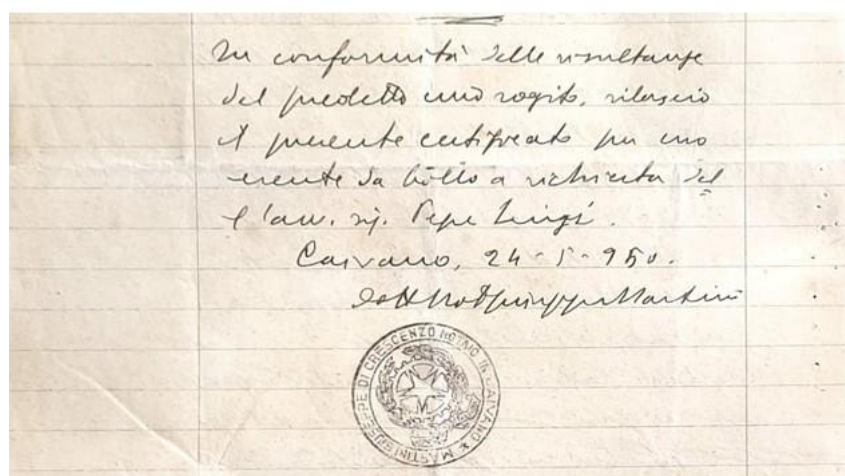 In conformità delle risultanze
del predetto mio rogito, rilascio
il presente certificato per uso
esente da bollo a richiesta del
l'avv. sig. Pepe Luigi.
Caivano, 24-5-950.
Dott Not Giuseppe Martini
MARTINI GIUSEPPE DI CRESCENZO NOTAIO IN CAIVANO ★